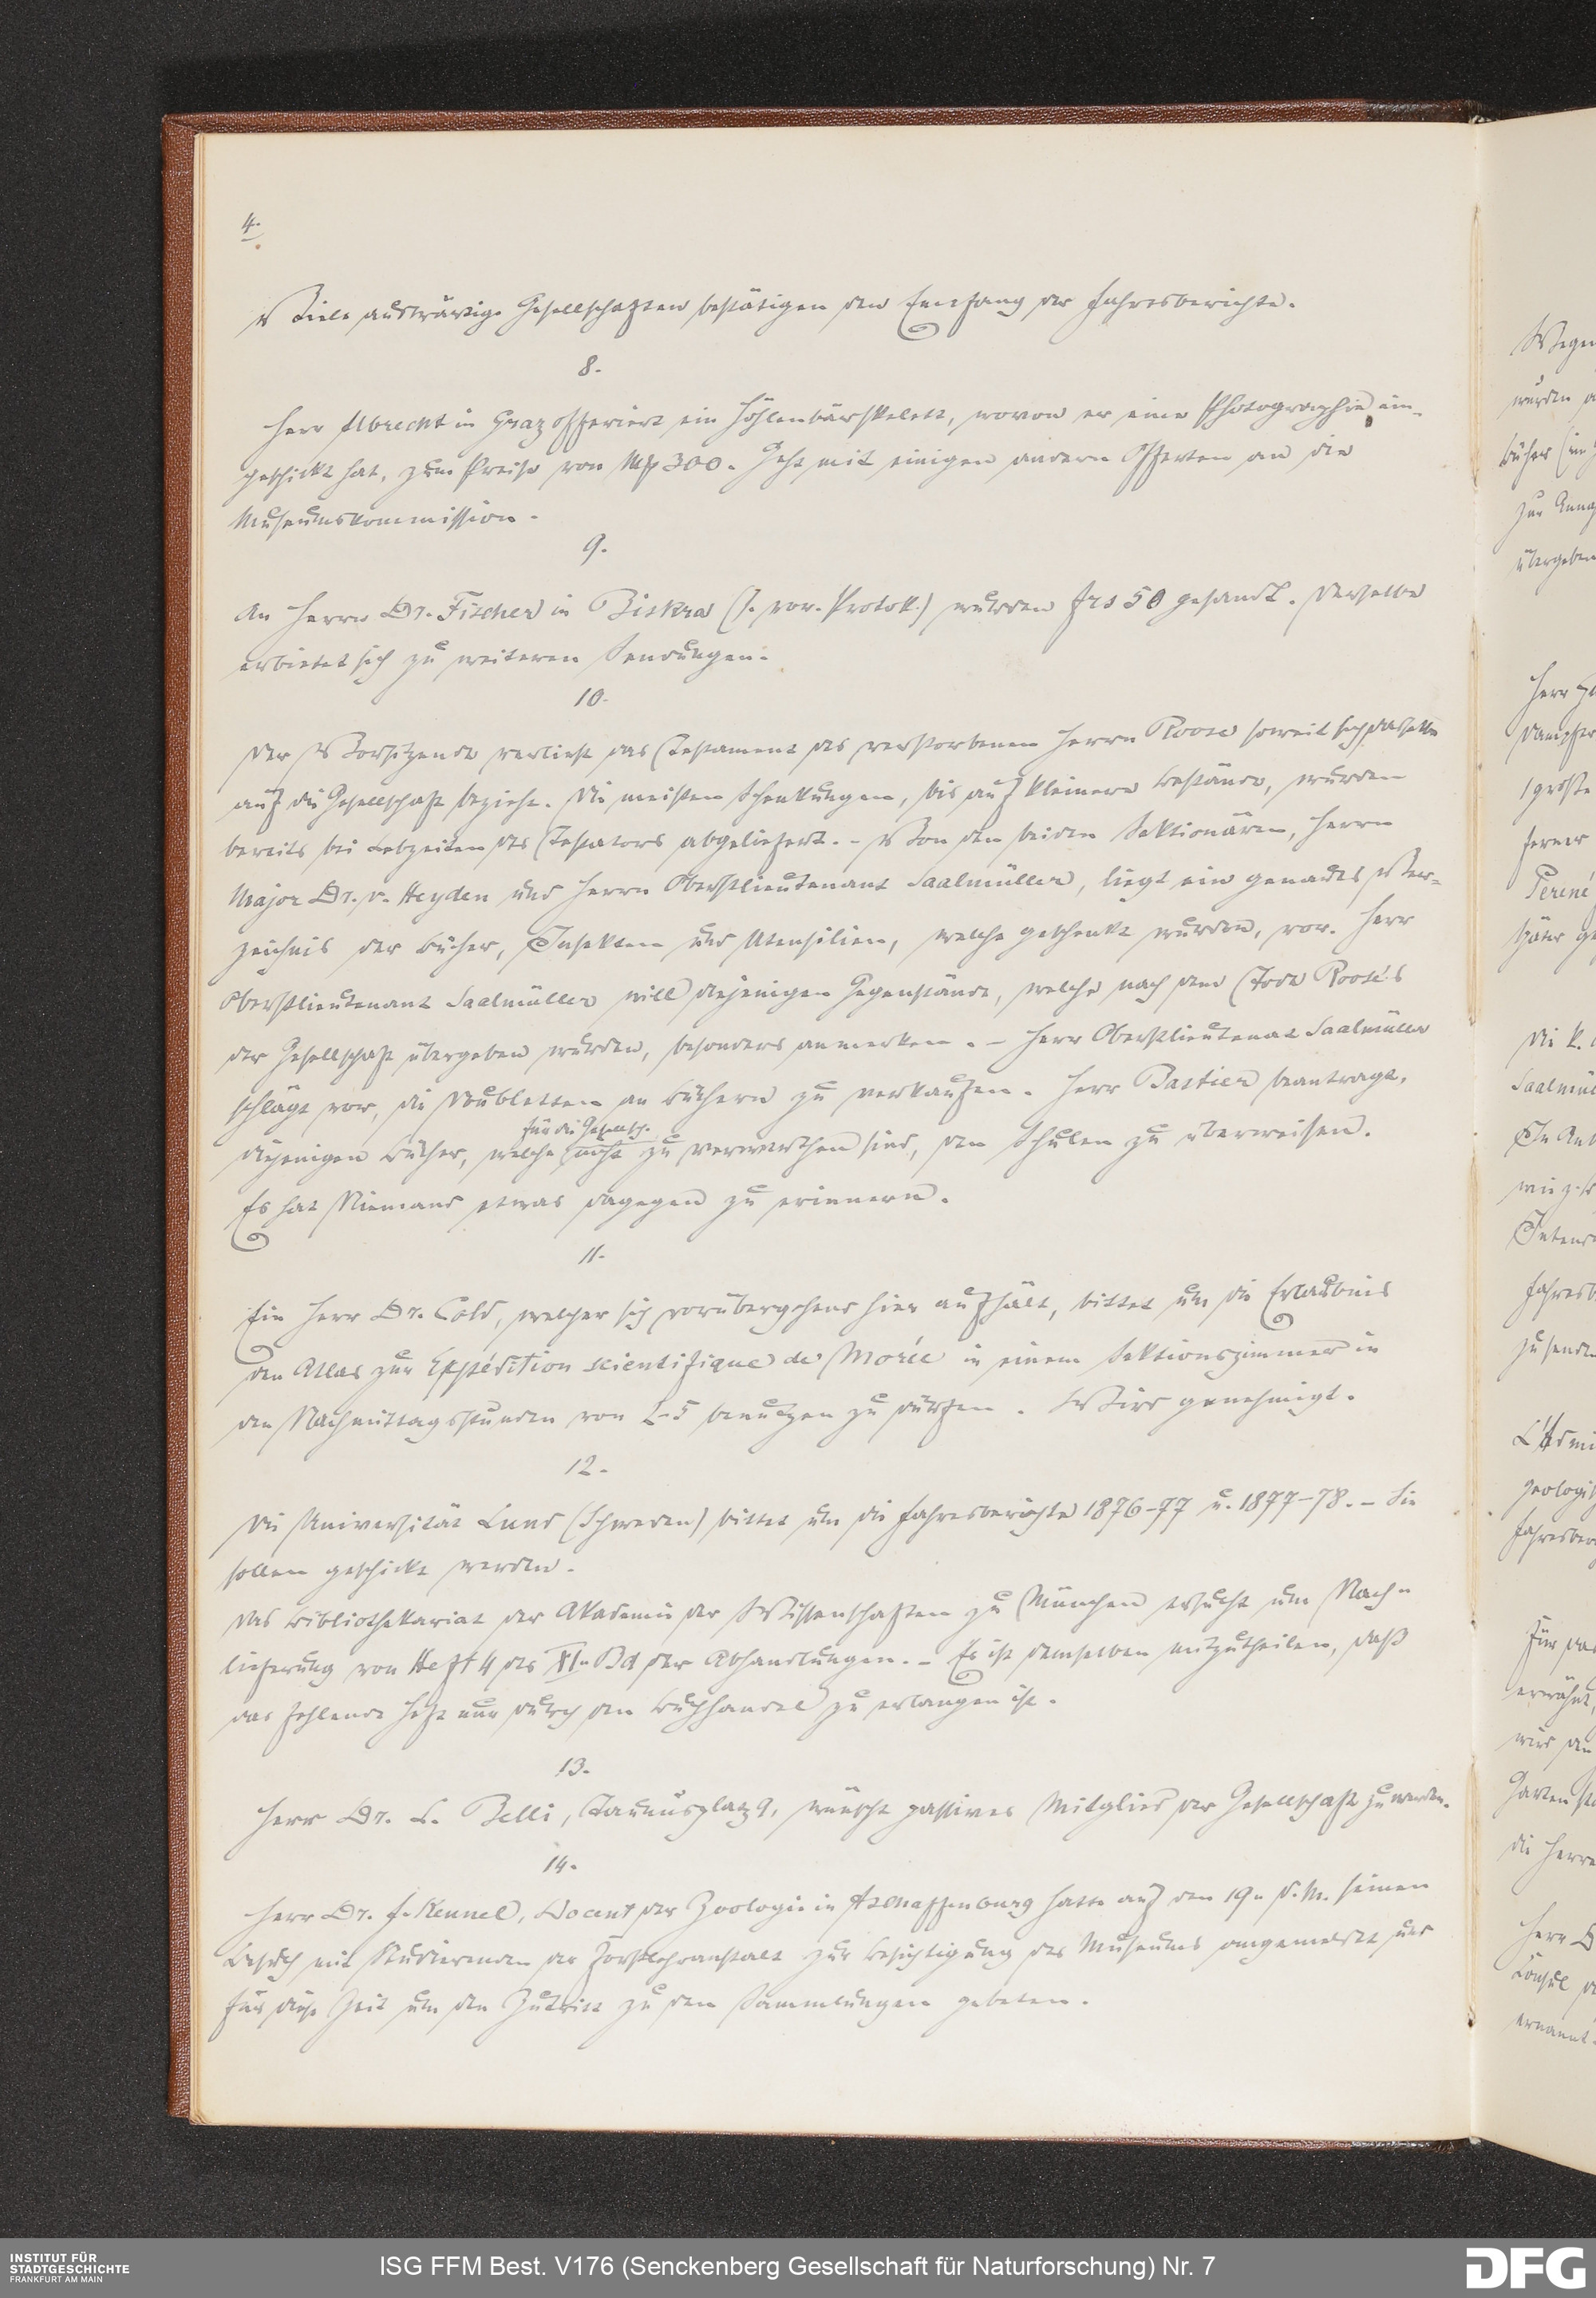 4.
Viele auswärtige Gesellschaften bestätigen den Empfang der Jahresberichte.
8.
Herr Albrecht in Graz offeriert ein Höhlenbärskelett, wovon er eine Photographie ein-
geschickt hat, zum Preise von Mk 300. Geht mit einigen andern Offerten an die
Museumskommission.
9.
An Herrn Dr. Fischer in Biskra (s. vor. Protok.) wurden frs 50 gesandt. Derselbe
erbietet sich zu weiteren Sendungen.
10.
Der Vorsitzende verliest das Testament des verstorbenen Herrn Roose soweit sich dasselbe
auf die Gesellschaft bezieht. Die meisten Schenkungen, bis auf kleinere Bestände, wurden
bereits bei Lebzeiten des Testators abgeliefert. – Von den beiden Sektionären, Herrn
Major Dr. v. Heyden und Herrn Oberstlieutenant Saalmüller, liegt ein genaues Ver-
zeichnis der Bücher, Insekten und Utensilien, welche geschenkt wurden, vor. Herr
Oberstlieutenant Saalmüller will diejenigen Gegenstände, welche nach dem Tode Roose's
der Gesellschaft übergeben wurden, besonders anmerken. – Herr Oberstlieutenat Saalmüller
schlägt vor, die Doubletten an Büchern zu verkaufen. Herr Bastier beantragt,
für die Gesellsch.
diejenigen Bücher, welche nicht zu verwerthen sind, den Schulen zu überweisen.
Es hat Niemand etwas dagegen zu erinnern.
11.
Ein Herr Dr. Cold, welcher sich vorübergehend hier aufhält, bittet um die Erlaubnis
den Atlas zur Expédition scientifique de Morée in einem Sektionszimmer in
den Nachmittagsstunden von 2-5 benutzen zu dürfen. Wird genehmigt.
12.
Die Universität Lund (Schweden) bittet um die Jahresberichte 1876-77 u. 1877-78. – Sie
sollen geschickt werden.
Das Bibliothekariat der Akademie der Wissenschaften zu München ersucht um Nach-
lieferung von Heft 4 des XI. Bd der Abhandlungen. – Es ist demselben mitzutheilen, daß
das fehlende Heft nur durch den Buchhandel zu erlangen ist.
13.
Herr Dr. L. Belli, Taunusplatz 9, wünscht passives Mitglied der Gesellschaft zu werden.
14.
Herr Dr. J. Kennel, Docent der Zoologie in Aschaffenburg hatte auf den 19. d. M. seinen
Besuch mit Studierenden der Forstlehranstalt zur Besichtigung des Museums angemeldet und
für diese Zeit um den Zutritt zu den Sammlungen gebeten.
INSTITUT FÜR
STADTGESCHICHTE
FRANKFURT AM MAIN
ISG FFM Best. V176 (Senckenberg Gesellschaft für Naturforschung) Nr. 7
DFG